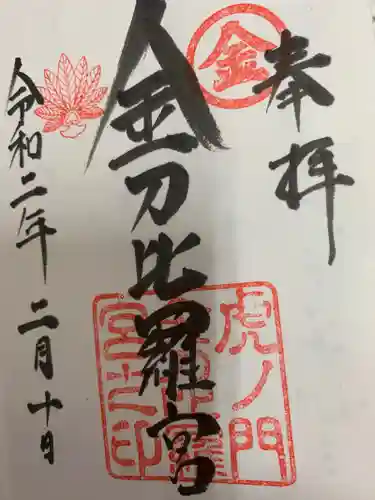 奉拝
金
金刀比羅宮
虎ノ門
金刀比羅
宮之印
令和二年 二月十日